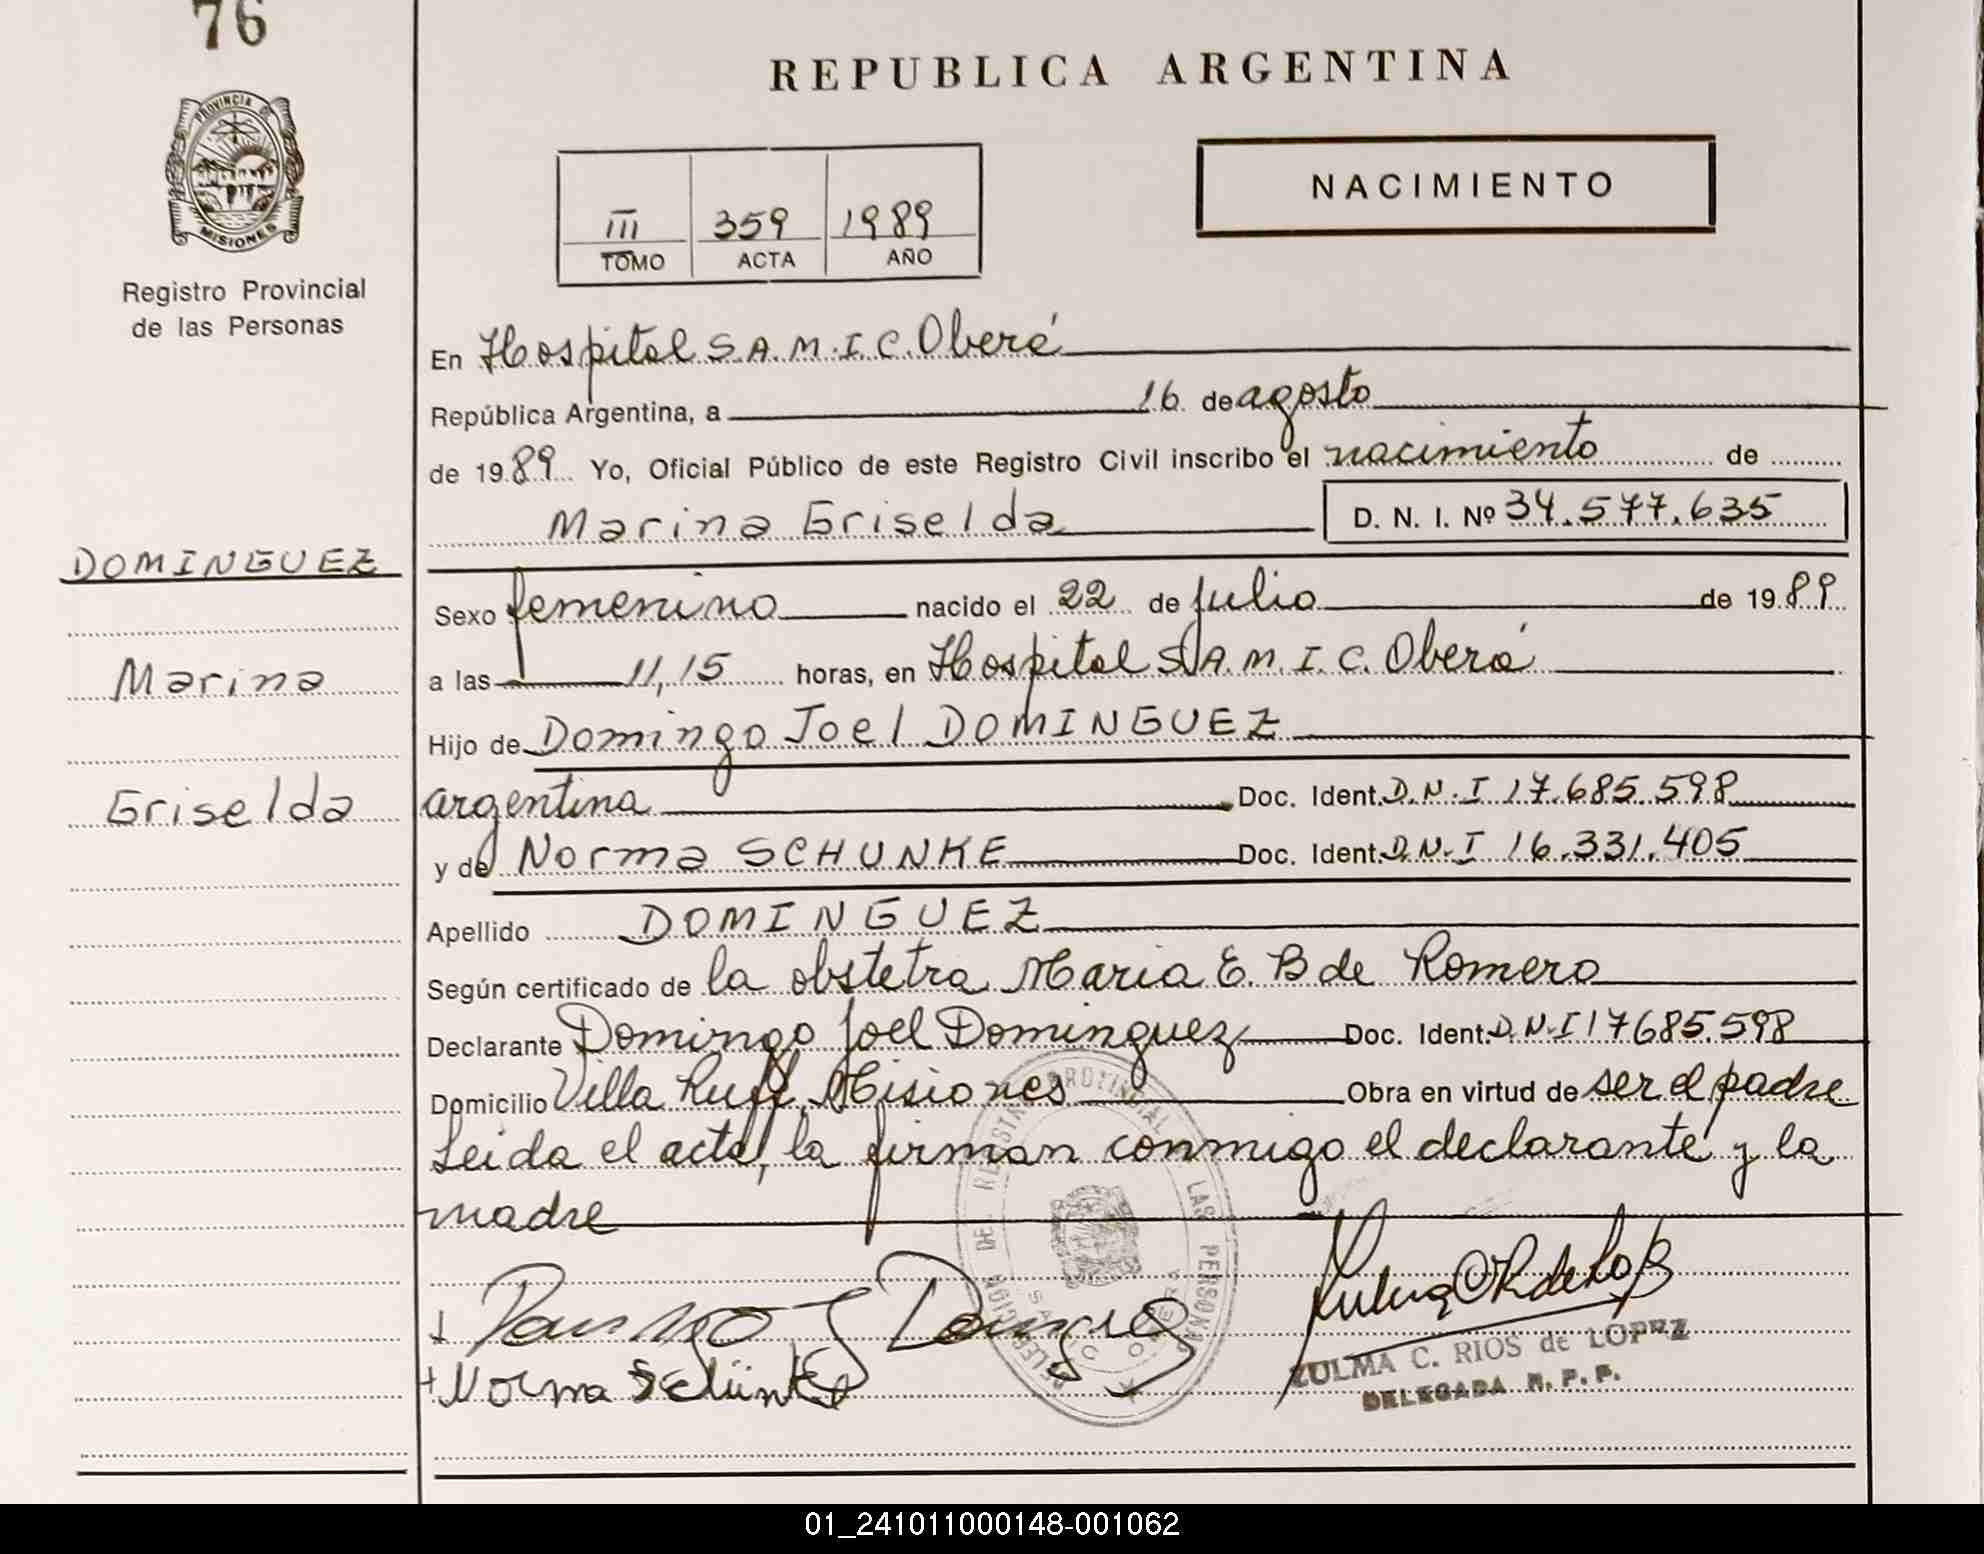 76
REPUBLICA ARGENTINA
PROVINCIA DE
MISIONES
Registro Provincial
de las Personas
III 359 1989
TOMO ACTA AÑO
NACIMIENTO
En Hospital S.A.M.I.C. Oberá
República Argentina, a 16 de agosto
de 1989 Yo, Oficial Público de este Registro Civil inscribo el nacimiento de
Marina Griselda D. N. I. Nº 34.577.635
DOMINGUEZ
Marina
Griselda
Sexo femenino nacido el 22 de julio de 1989
a las 11,15 horas, en Hospital S.A.M.I.C. Oberá
Hijo de Domingo Joel DOMINGUEZ
argentina Doc. Ident. D.N.I 17.685.598
y de Norma SCHUNKE Doc. Ident. D.N.I 16.331.405
Apellido DOMINGUEZ
Según certificado de la obstetra Maria E. B de Romero
Declarante Domingo Joel Dominguez Doc. Ident. D.N.I 17685.598
Domicilio Villa Ruff, Misiones Obra en virtud de ser el padre
Leida el acta, la firman conmigo el declarante y la
madre
Norma Schünke
ZULMA C. RIOS de LOPEZ
DELEGADA R. P. P.
01_241011000148-001062